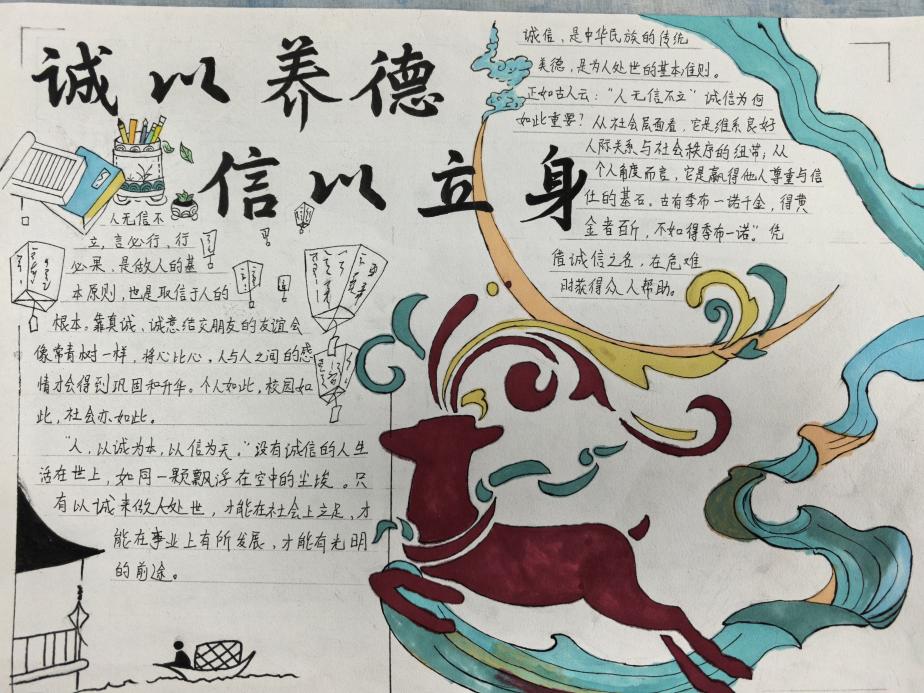 诚以养德
信以立身
人无信不
立，言必行，行
必果，是做人的基
本原则，也是取信于人的
根本。靠真诚、诚意结交朋友的友谊会
像常青树一样，将心比心，人与人之间的感
情才会得到巩固和升华。个人如此，校园如
此，社会亦如此。
“人，以诚为本，以信为天。”没有诚信的人生
活在世上，如同一颗飘浮在空中的尘埃。只
有以诚来做人处世，才能在社会上立足，才
能在事业上有所发展，才能有光明
的前途。
诚信，是中华民族的传统
美德，是为人处世的基本准则。
正如古人云：“人无信不立”诚信为何
如此重要？从社会层面看，它是维系良好
人际关系与社会秩序的纽带；从
个人角度而言，它是赢得他人尊重与信
任的基石。古有季布一诺千金，得黄
金者百斤，不如得季布一诺。”凭
借诚信之名，在危难
时获得众人帮助。